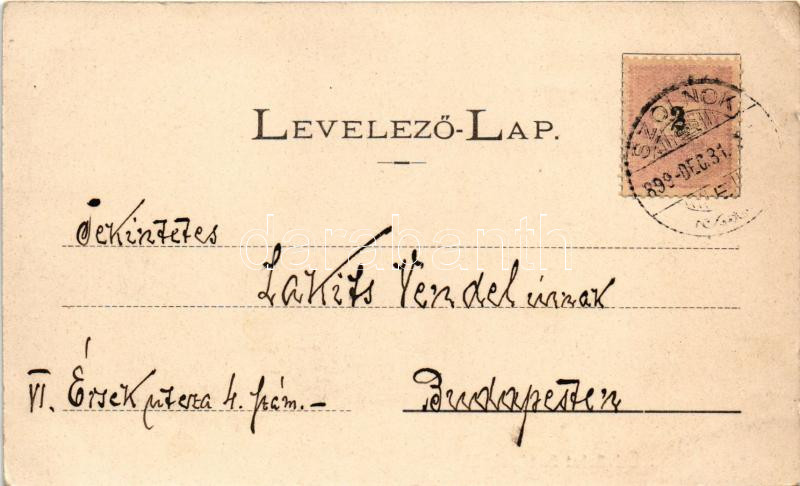 LEVELEZŐ-LAP.
2
SZOLNOK
899-DEC.31.
Tekintetes
Lakits Vendel úrnak
VI. Érsek utcza 4. szám.-
Budapesten
darabanth